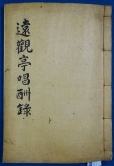 遠觀亭唱酬錄